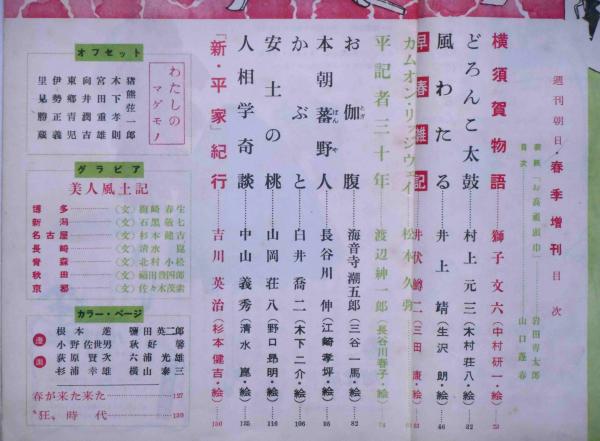 週刊朝日・春季増刊 目次
表紙「お高祖頭巾」……岩田専太郎
目次………山口蓬春
横須賀物語 獅子文六(中村研一・絵)……23
どろんこ太鼓 村上元三(木村荘八・絵)……32
風わたる 井上靖(生沢朗・絵)……46
早春雑記 井伏鱒二(三田康・絵)……51
カムオン・リッジウェイ 松本久弥……61
平記者三十年 渡辺紳一郎(長谷川春子・絵)……74
お伽腹 海音寺潮五郎(三谷一馬・絵)……82
本朝蕃野人 長谷川伸(江崎孝坪・絵)……95
げんや
かぶと 白井喬二(木下二介・絵)……106
安土の桃 山岡荘八(野口昂明・絵)……116
人相学奇談 中山義秀(清水崑・絵)……135
「新・平家」紀行 吉川英治(杉本健吉・絵)……150
オフセット
わたしのマダモ!
猪熊弦一郎
木下孝則
宮田重雄
向井潤吉
東郷青児
伊勢正義
里見勝蔵
グラビア
美人風土記
博多……(文)梅崎春生
新潟……(文)石黒敬七
名古屋……(文)杉本健吉
長崎……(文)清水崑
青森……(文)北村小松
秋田……(文)福田豊四郎
京都……(文)佐々木茂索
カラー・ページ
漫画
根本進 鹽田英二郎
小野佐世男 秋好馨
荻原賢次 六浦光雄
杉浦幸雄 横山泰三
春が来た来た……127
“狂”時代……139